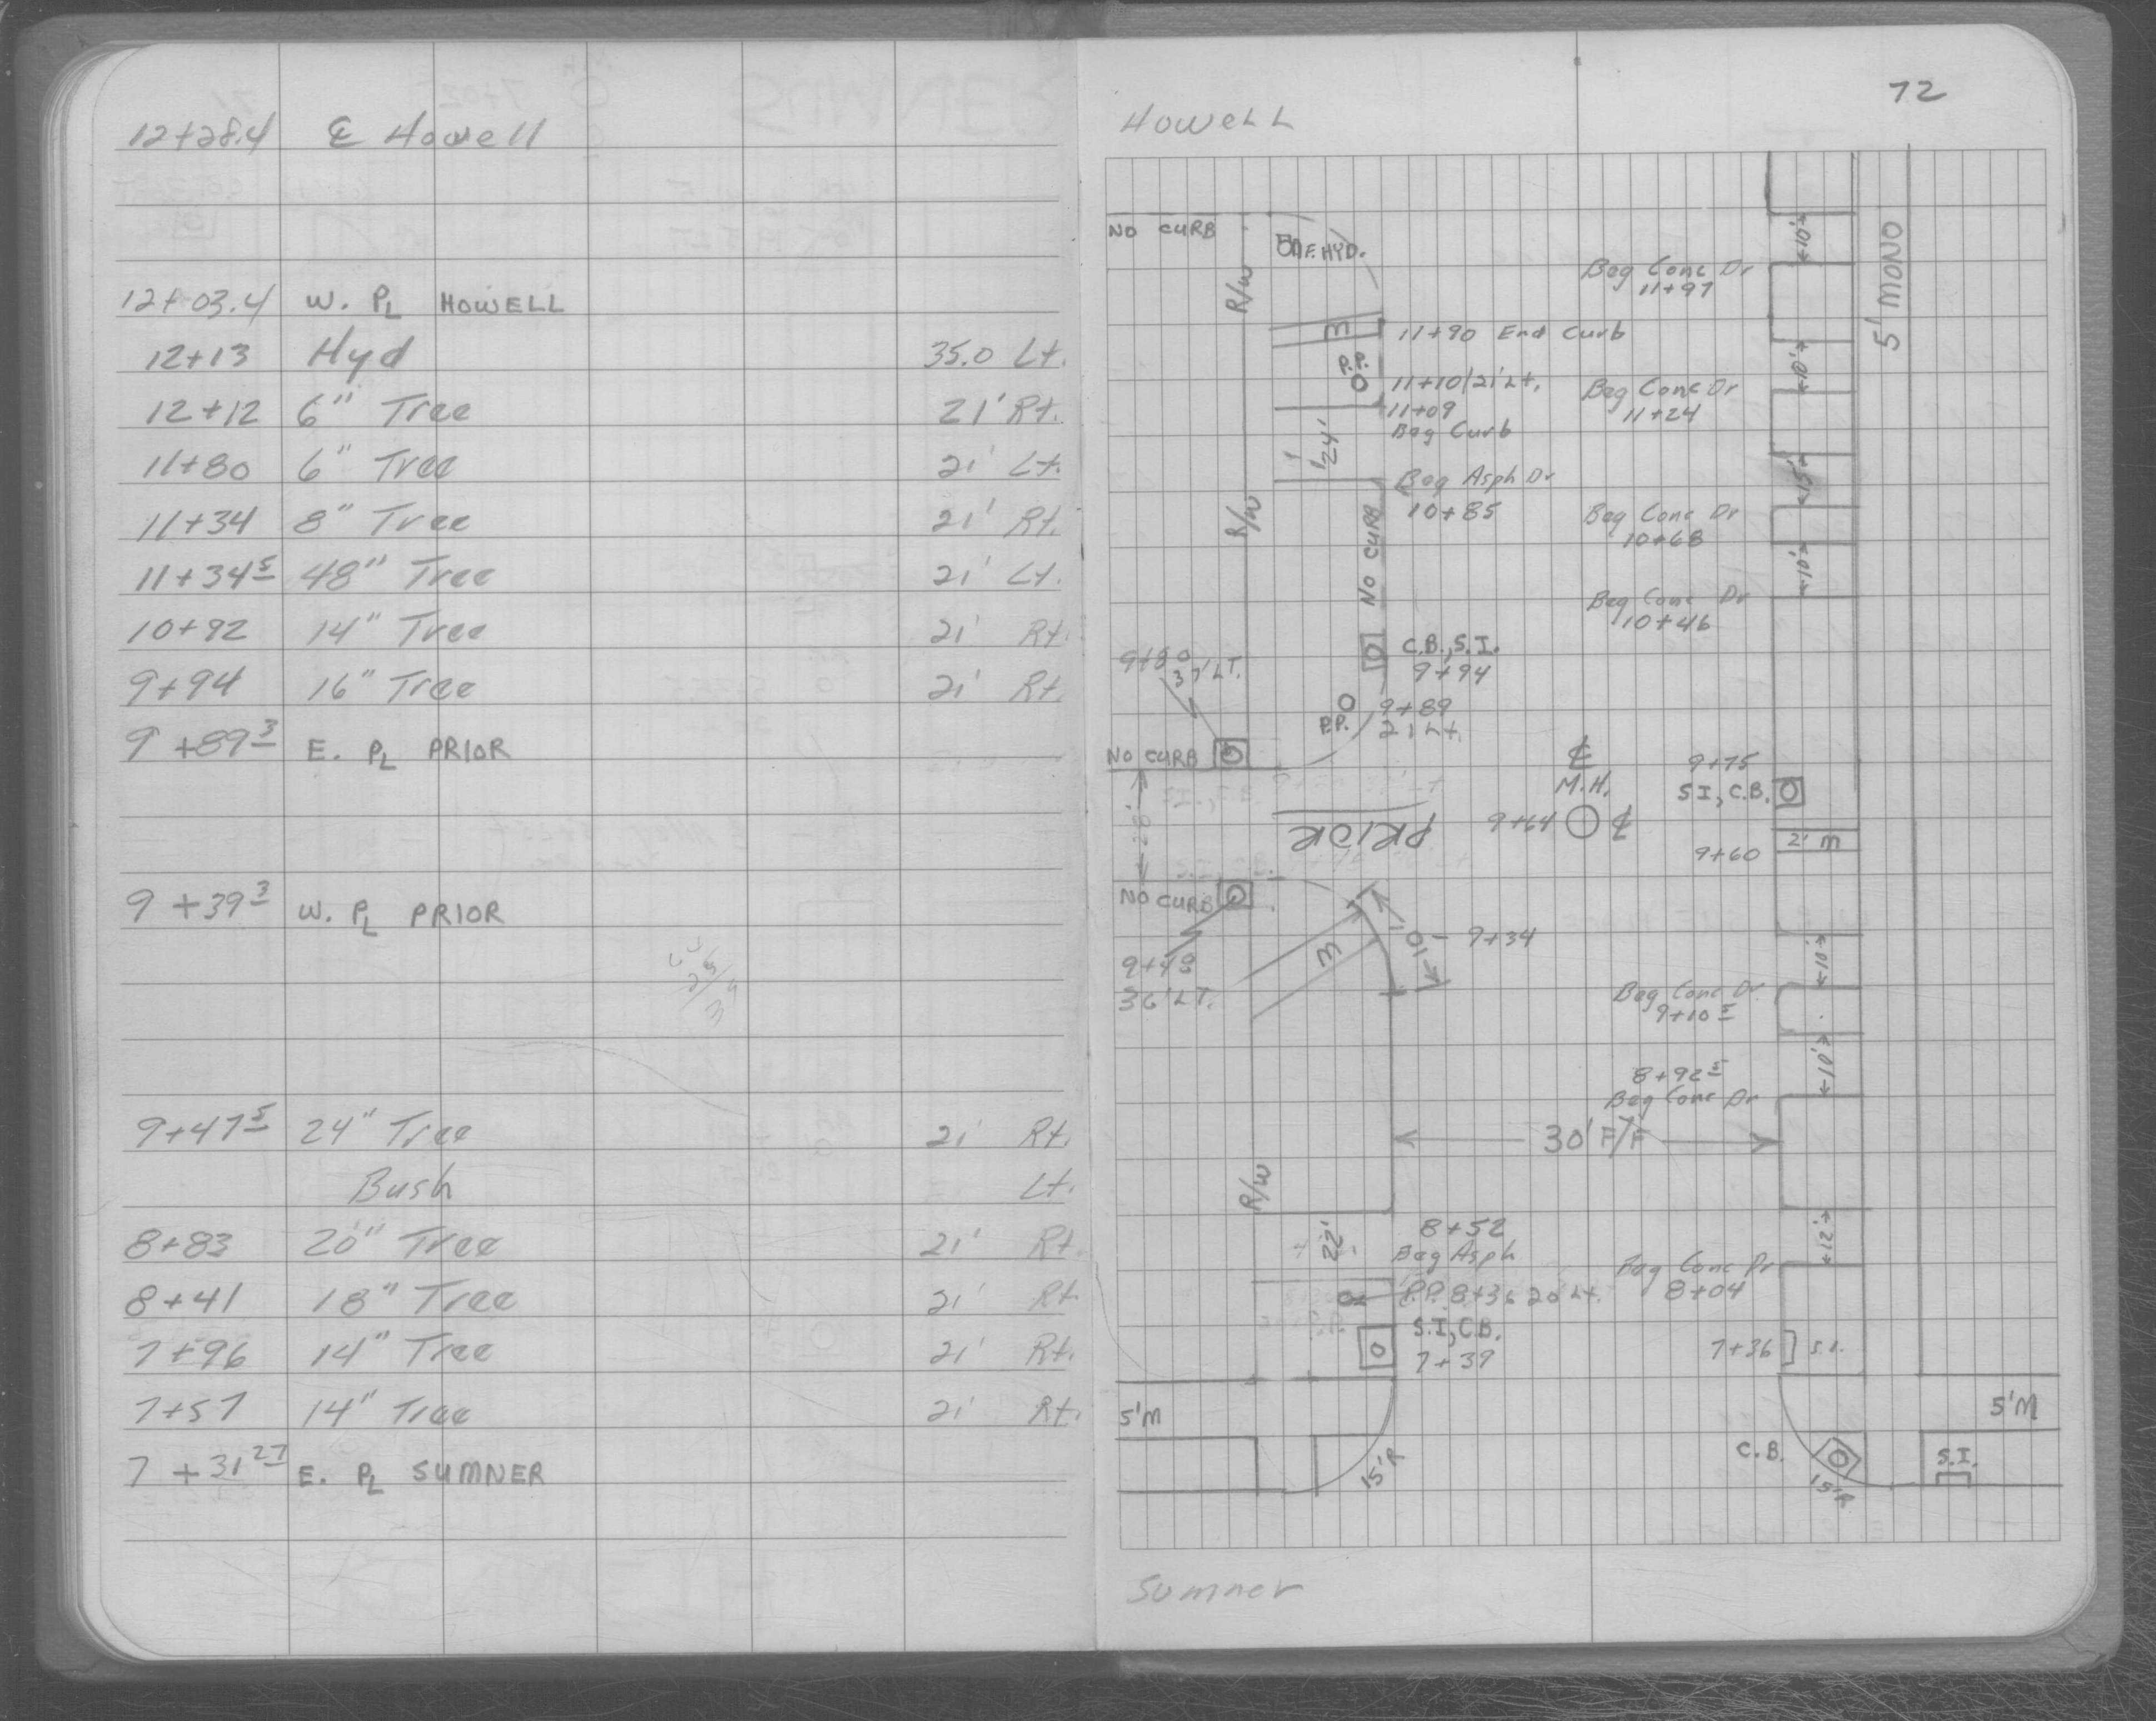 12+28.4 ℄ Howell
12+03.4 W. PL HOWELL
12+13 Hyd 35.0 Lt.
12+12 6" Tree 21' Rt.
11+80 6" Tree 21' Lt.
11+34 8" Tree 21' Rt.
11+34⁵ 48" Tree 21' Lt.
10+92 14" Tree 21' Rt.
9+94 16" Tree 21' Rt.
9+89³ E. PL PRIOR
9+39³ W. PL PRIOR
9+47⁵ 24" Tree 21' Rt.
Bush Lt.
8+83 20" Tree 21' Rt.
8+41 18" Tree 21' Rt.
7+96 14" Tree 21' Rt.
7+57 14" Tree 21' Rt.
7+31²⁷ E. PL SUMNER
72
HOWELL
NO CURB
F.HYD.
R/W
10'
5' MONO
Beg Conc Dr
11+97
M
11+90 End Curb
P.P.
11+10/21' Lt.
10'
Beg Conc Dr
11+24
11+09
Beg Curb
24'
15'
Beg Asph Dr
10+85
R/W
NO CURB
Beg Conc Dr
10+68
10'
Beg Conc Dr
10+46
C.B., S.I.
9+94
9+80
37' LT.
P.P.
9+89
21 Lt.
NO CURB
℄
M.H.
9+64 ℄
9+75
S I, C.B.
28'
PRIOR
2' M
9+60
NO CURB
M
10'
9+34
9+48
36' LT.
10'
Beg Conc Dr
9+10⁵
10'
8+92⁵
Beg Conc Dr
30' F/F
R/W
22'
8+52
Beg Asph
12'
Beg Conc Dr
8+04
P.P. 8+36 20' Lt.
S.I, C.B.
7+39
7+36 S.I.
5'M
15'R
C.B.
15'R
5'M
S.I.
Sumner